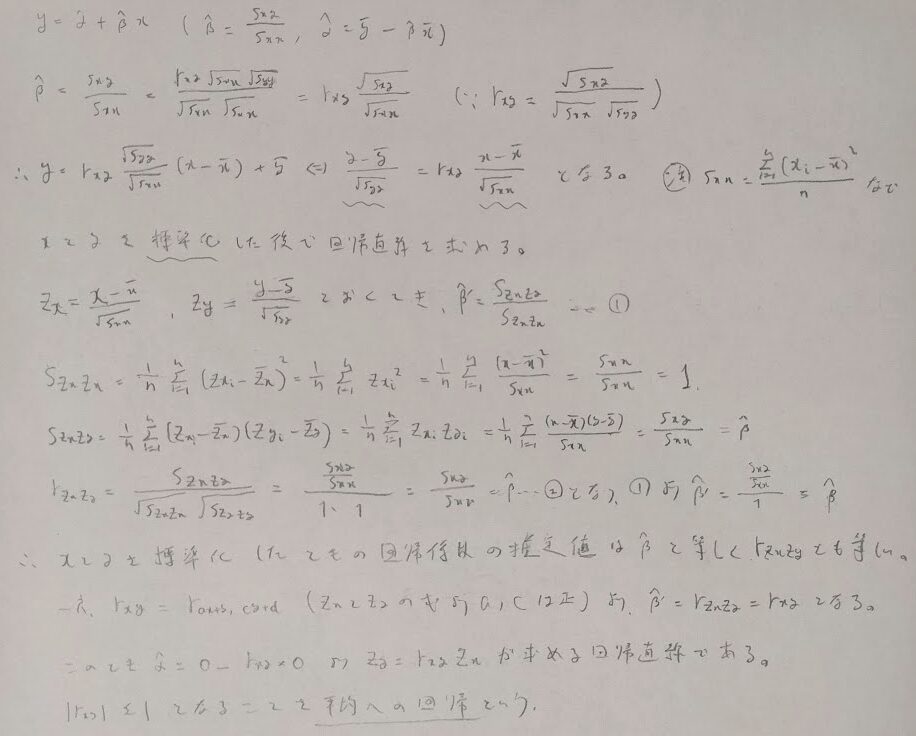 y = α̂ + β̂x ( β̂ = Sxy/Sxx , α̂ = ȳ − β̂x̄ )
β̂ = Sxy/Sxx = rxy√Sxx√Syy/(√Sxx√Sxx) = rxy √Sxy/√Sxx (∵ rxy = √Sxy/(√Sxx√Syy))
∴ y = rxy √Syy/√Sxx (x − x̄) + ȳ ⇔ (y − ȳ)/√Syy = rxy (x − x̄)/√Sxx となる。 注 Sxx = Σ_{i=1}^{n}(xi − x̄)²/n なので
xとyを標準化した後で回帰直線を求める。
Zx = (x − x̄)/√Sxx , Zy = (y − ȳ)/√Syy とおくとき、β̂' = SZxZy/SZxZx … ①
SZxZx = 1/n Σ_{i=1}^{n} (Zxi − Z̄x)² = 1/n Σ_{i=1}^{n} Zxi² = 1/n Σ_{i=1}^{n} (x − x̄)²/Sxx = Sxx/Sxx = 1.
SZxZy = 1/n Σ_{i=1}^{n} (Zxi − Z̄x)(Zyi − Z̄y) = 1/n Σ_{i=1}^{n} Zxi Zyi = 1/n Σ_{i=1}^{n} (x − x̄)(y − ȳ)/Sxx = Sxy/Sxx = β̂
rZxZy = SZxZy/(√SZxZx √SZyZy) = (Sxy/Sxx)/(1·1) = Sxy/Sxx = β̂ … ② となり、①より β̂' = (Sxy/Sxx)/1 = β̂
∴ xとyを標準化したときの回帰係数の推定値はβ̂と等しくrZxZyとも等しい。
一方、rxy = rax+b, cy+d (ZxとZyの式よりa, cは正) より、β̂' = rZxZy = rxy となる。
このとき α̂ = 0 − rxy×0 より Zy = rxy Zx が求める回帰直線である。
|rxy| ≤ 1 となることを平均への回帰という.